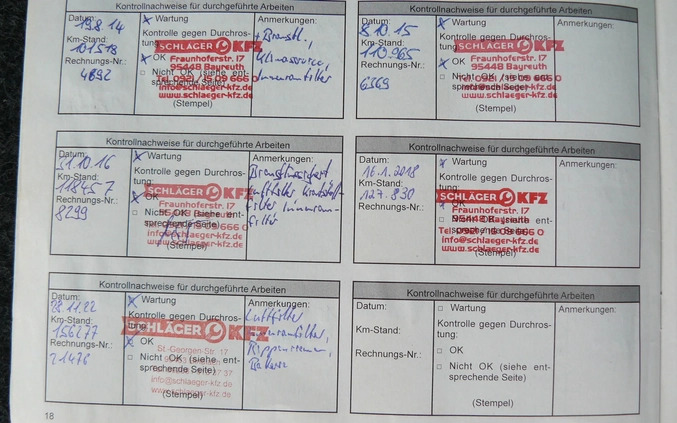 Kontrollnachweise für durchgeführte Arbeiten
Datum: 19.8.14
Km-Stand: 101518
Rechnungs-Nr.: 4892
Wartung
Kontrolle gegen Durchrostung:
OK
Nicht OK (siehe entsprechende Seite)
(Stempel)
SCHLÄGER KFZ
Fraunhoferstr. 17
95448 Bayreuth
Tel. 0921 / 15 09 666 0
info@schlaeger-kfz.de
www.schlaeger-kfz.de
Anmerkungen:
Innenraumfilter
Kontrollnachweise für durchgeführte Arbeiten
Datum: 8.10.15
Km-Stand: 110.965
Rechnungs-Nr.: 6369
Wartung
Kontrolle gegen Durchrostung:
OK
Nicht OK (siehe entsprechende Seite)
(Stempel)
SCHLÄGER KFZ
Fraunhoferstr. 17
95448 Bayreuth
info@schlaeger-kfz.de
www.schlaeger-kfz.de
Anmerkungen:
Kontrollnachweise für durchgeführte Arbeiten
Datum:
Km-Stand: 118457
Rechnungs-Nr.: 8299
Wartung
Kontrolle gegen Durchrostung:
OK
Nicht OK (siehe entsprechende Seite)
(Stempel)
SCHLÄGER KFZ
Fraunhoferstr. 17
info@schlaeger-kfz.de
www.schlaeger-kfz.de
Anmerkungen:
Luftfilter
Kontrollnachweise für durchgeführte Arbeiten
Datum: 16.1.2018
Km-Stand: 127.830
Rechnungs-Nr.:
Wartung
Kontrolle gegen Durchrostung:
OK
Nicht OK (siehe entsprechende Seite)
(Stempel)
SCHLÄGER KFZ
Fraunhoferstr. 17
95448 Bayreuth
Tel. 0921 / 15 09 666 0
info@schlaeger-kfz.de
www.schlaeger-kfz.de
Anmerkungen:
Kontrollnachweise für durchgeführte Arbeiten
Datum: 28.11.22
Km-Stand: 156277
Rechnungs-Nr.: 21476
Wartung
Kontrolle gegen Durchrostung:
OK
Nicht OK (siehe entsprechende Seite)
(Stempel)
SCHLÄGER KFZ
St.-Georgen-Str. 17
info@schlaeger-kfz.de
www.schlaeger-kfz.de
Anmerkungen:
Luftfilter
Innenraumfilter,
Kontrollnachweise für durchgeführte Arbeiten
Datum:
Km-Stand:
Rechnungs-Nr.:
Wartung
Kontrolle gegen Durchrostung:
OK
Nicht OK (siehe entsprechende Seite)
(Stempel)
Anmerkungen:
18